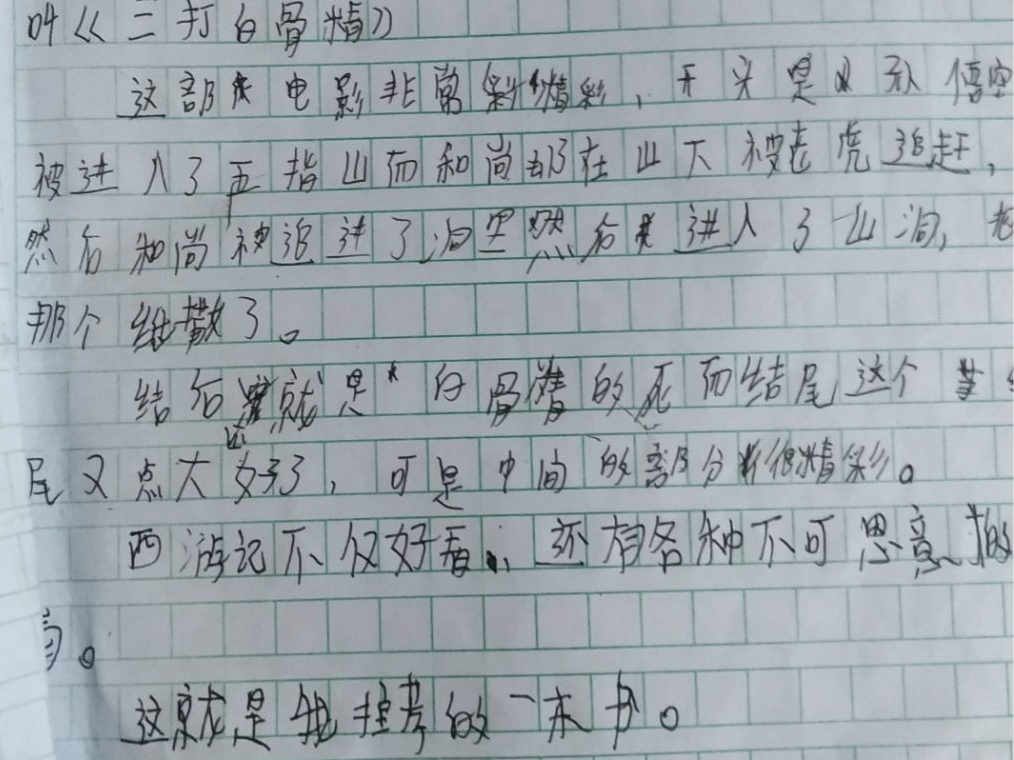 叫《三打白骨精》
这部电影非常精彩，开头是孙悟空
被进入了五指山而和尚却在山下被老虎追赶，
然后和尚被追进了洞里然后进入了山洞，
那个给散了。
结后就是白骨精的死而结尾这个
尾又点太好了，可是中间的部分很精彩。
西游记不仅好看，还有各种不可思意的
这就是我推荐的一本书。